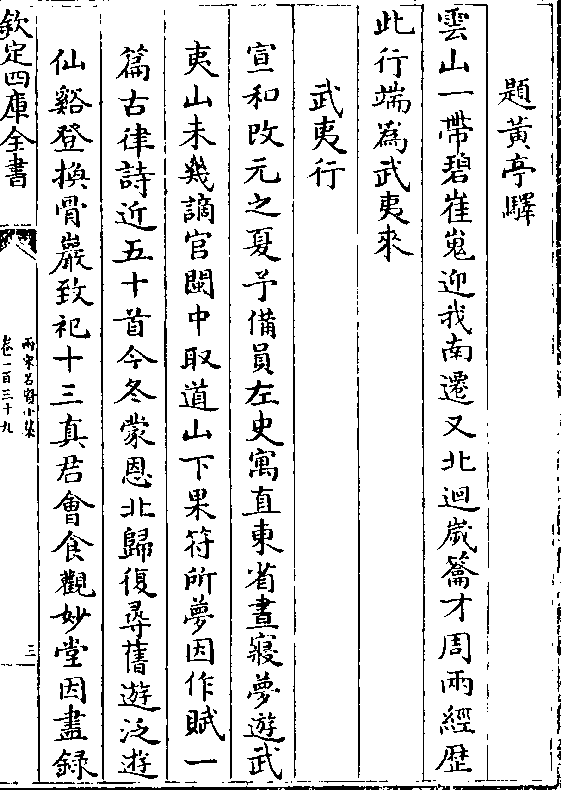 題黄亭驛
雲山一帶碧崔嵬迎我南遷又北迴嵗籥才周兩經歴
此行端為武夷來
武夷行
宣和改元之夏予備員左史寓直東省晝寢夢遊武
夷山未幾謫官閩中取道山下果符所夢因作賦一
篇古律詩近五十首今冬蒙恩北歸復尋舊遊泛遊
仙谿登換骨巖致祀十三真君會食觀妙堂因盡録
欽定四庫全書
兩宋名賢小集
卷一百三十九
三